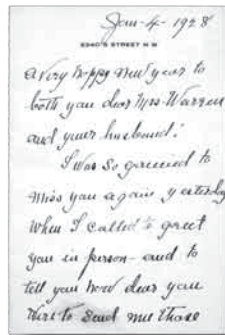 Jan-4-1928
2340 S STREET N W
A very happy new year to
both you dear Mrs. Warren
and your husband!
I was so grieved to
miss you again yesterday
when I called to greet
you in person - and to
tell you how dear you
were to send me those